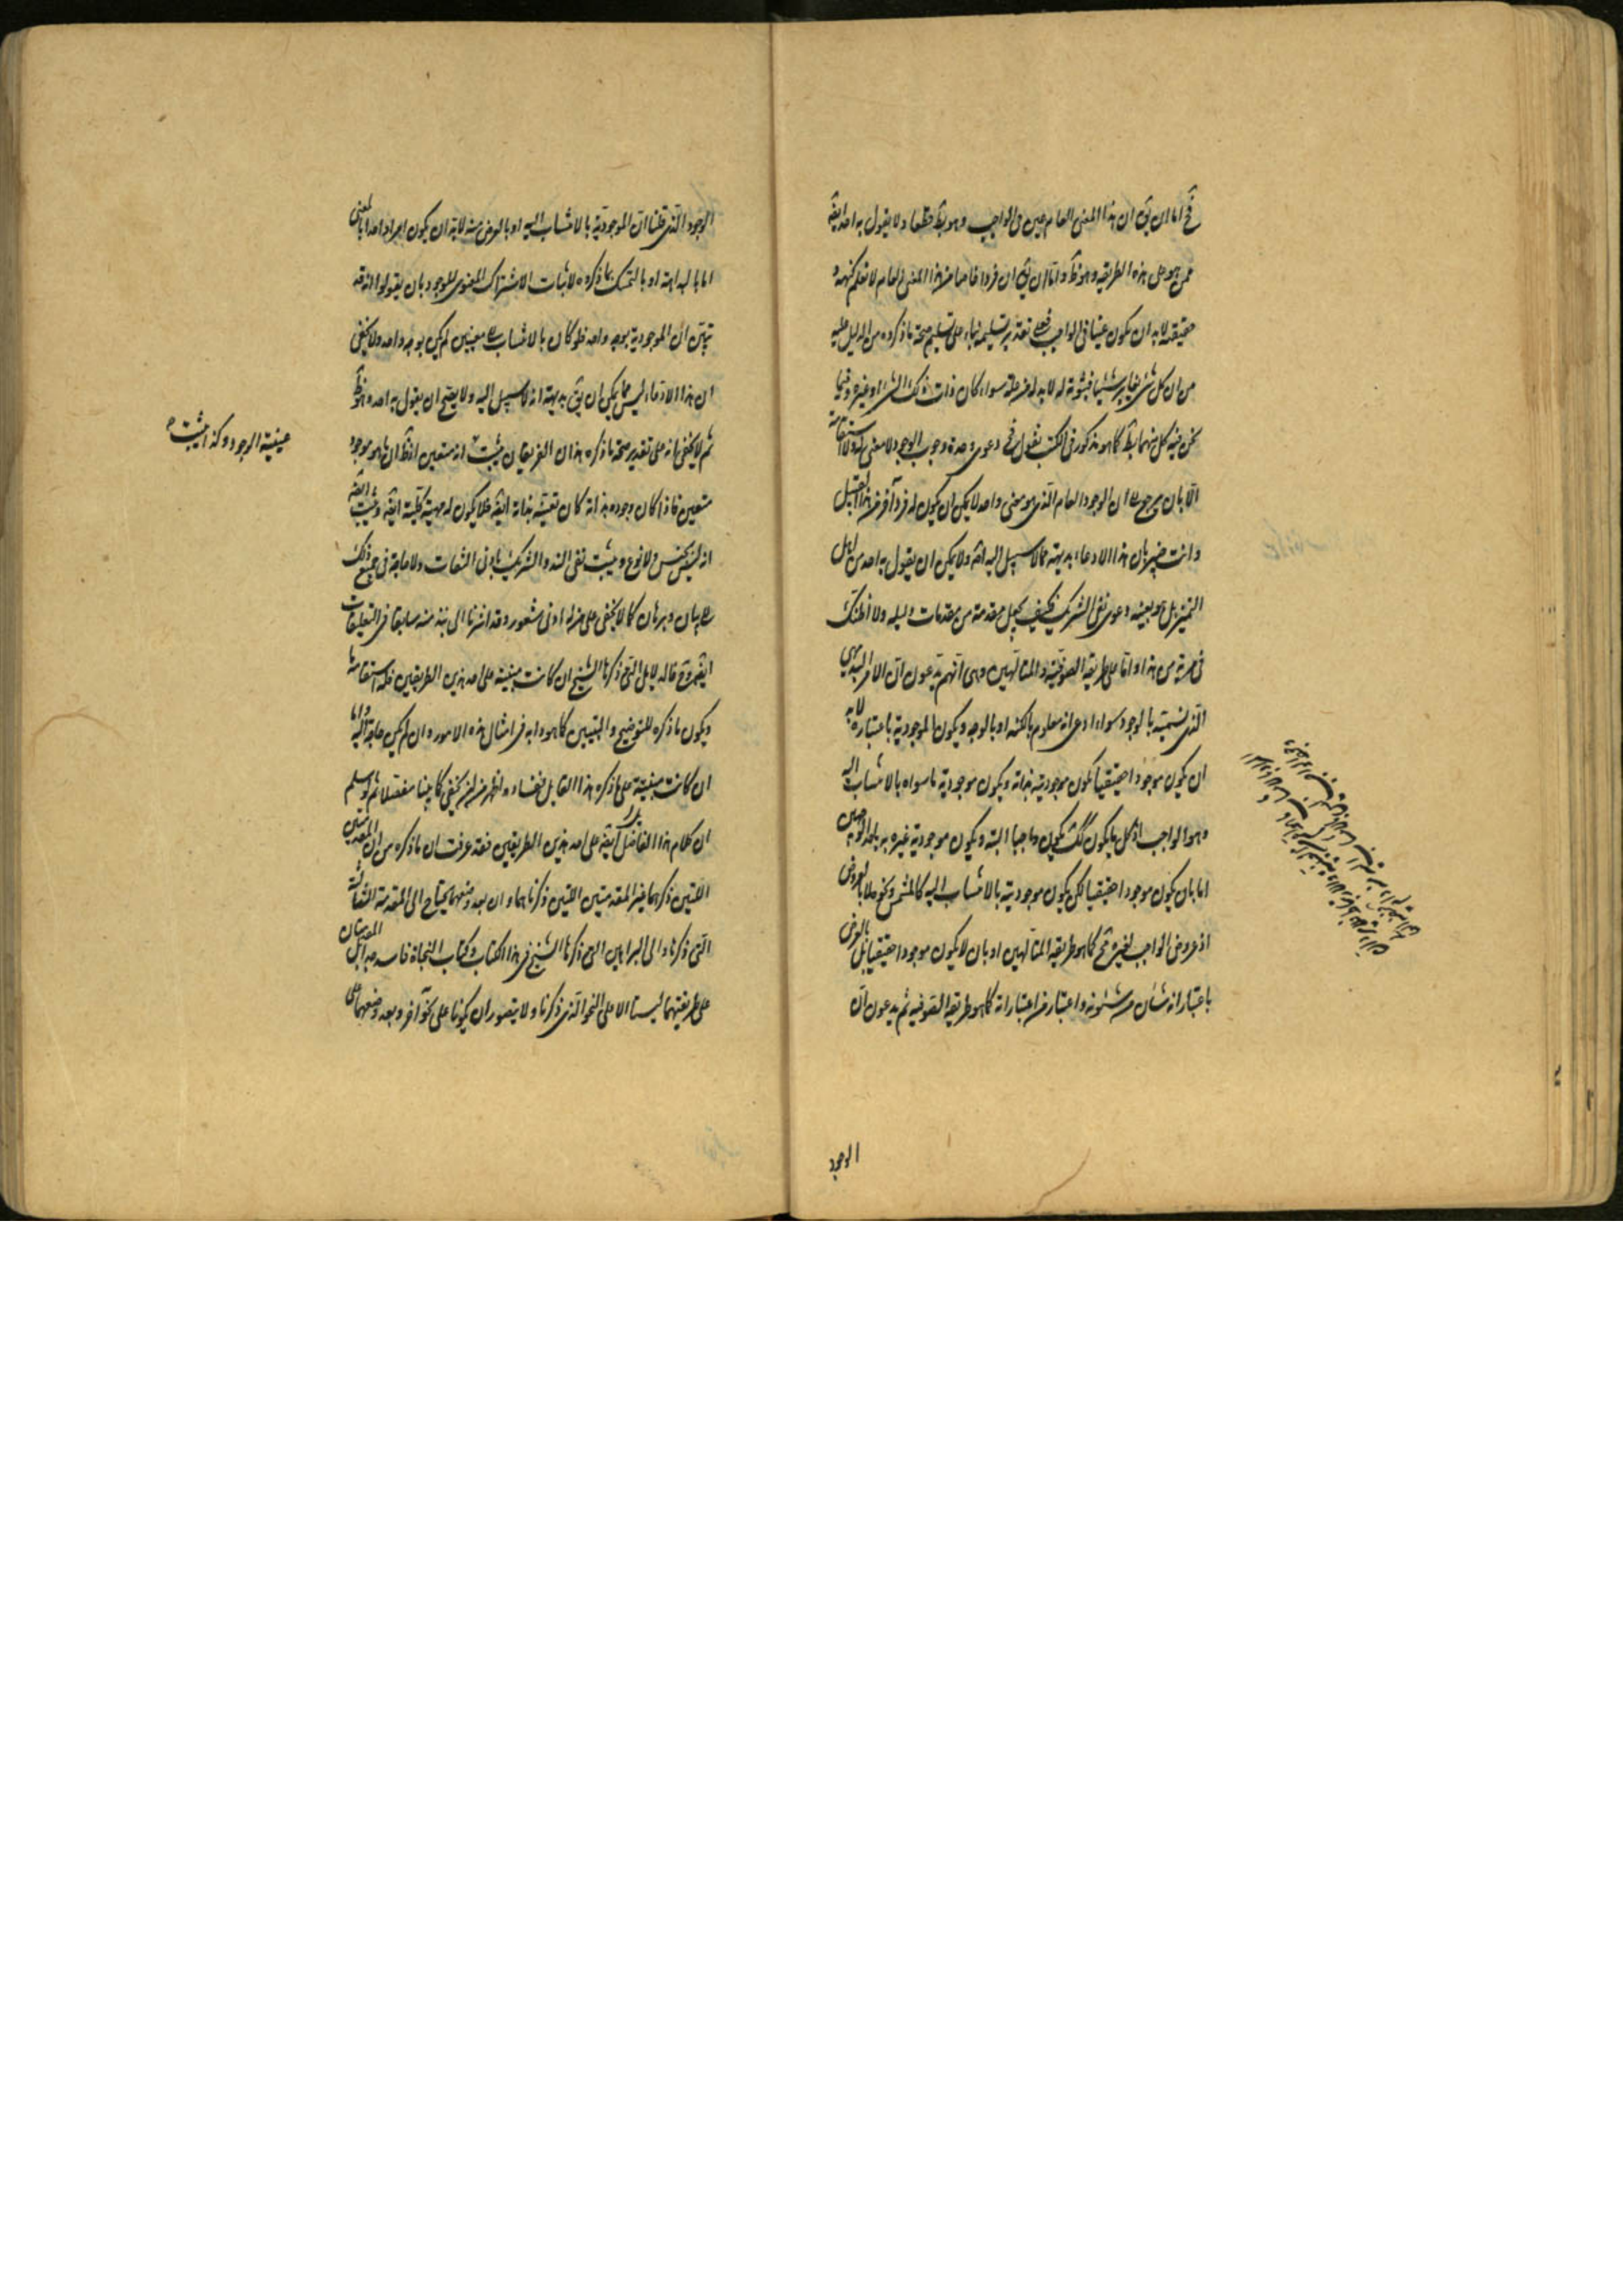 فح اما ان يق ان هذا المعنى العام عين فى الواجب وهو بط قطعا ولا يقول به احد ايضا
ممن هو على هذه الطريقة وهو ظ واما ان يق ان فردا خاصا من هذا المعنى العام لا نعلم كنهه و
حقيقته لابد ان يكون عينا فى الواجب فعلى تقدير تسليمه بناء على تسليم صحة ما ذكروه من الدليل عليه
من ان كل شئ يغاير شيئا فثبوته له لابد له من علة سواء كان ذات ذلك الشئ او غيره وفيما
نحن فيه كل منهما بط كما هو مذكور فى الكتب نقول فح دعوى وحدة وجوب الوجود لا معنى له ولا استقامة
الا بان يرجع الى ان الوجود العام الذى هو معنى واحد لا يمكن ان يكون له فرد آخر من هذا القبيل
وانت خبير بان هذا الادعاء بديهة مما لا سبيل اليه اصلا ولا يمكن ان يقول به احد من اهل
التميز بل هو بعينه دعوى نفى الشريك فكيف يجعل مقدمة من مقدمات دليله ولا اظنك
فى مرية من هذا واما على طريقة الصوفية والمتالهين وهى انهم يدعون ان الامر البديهى
الذى نسميه بالوجود سواء ادعى انه معلوم بالكنه او بالوجه ويكون الموجودية باعتباره لابد
ان يكون موجودا حقيقيا يكون موجوديته بذاته ويكون موجودية ما سواه بالانتساب اليه
وهو الواجب اذ كل ما يكون كذلك يكون واجبا البتة ويكون موجودية غيره به باحد الوجهين
اما بان يكون موجودا حقيقيا لكن يكون موجوديته بالانتساب اليه كالمشمس ونحوه لا بالعروض
اذ عروض الواجب لغيره مح كما هو طريقة المتالهين او بان لا يكون موجودا حقيقيا بل بالعرض
باعتبار انه شان من شئونه واعتبار من اعتباراته كما هو طريقة الصوفية ثم يدعون ان
الوجود
الوجود الذى قلنا ان الموجودية بالانتساب اليه او بالعرض منه لابد ان يكون امرا واحدا بالمعنى
اما بالبداهة او بالتمسك بما ذكروه لاثبات الاشتراك المعنوى للوجود بان يقولوا انه قد
تبين ان الموجودية بوجه واحد فلو كان بالانتساب الى معنيين لم يكن بوجه واحد ولا يخفى
ان هذا الادعاء ليس مما يمكن ان يق بديهة انه لا سبيل اليه ولا يصح ان يقول به احد وهو ظ
ثم لا يخفى انه على تقدير صحة ما ذكره هذان الفريقان يثبت انه متعين اذ ظ ان ما هو موجود
متعين فاذا كان وجوده بذاته كان تعينه بذاته ايضا فلا يكون له مهية كلية ايضا ويثبت ايضا
انه ليس بجنس ولا نوع ويثبت نفى الند والشريك باوفى الشقات ولا حاجة فى جميع ذلك
الى بيان وبرهان كما لا يخفى على من له ادنى شعور وقد اشرنا الى نبذ منه سابقا فى التعليقات
ايضا وح فالدلايل التى ذكرها الشيخ ان كانت مبنية على احد هذين الطريقين فله استقامة ما
ويكون ما ذكره للتوضيح والتبيين كما هو دابه فى امثال هذه الامور وان لم يكن حاجة اليه واما
ان كانت مبنية على ما ذكره هذا القايل ففساده اظهر من ان يخفى كما بينا مفصلا ثم لو سلم
ان كلام هذا الفاضل ايضا على احد هذين الطريقين فقد عرفت ان ما ذكره من ان المقدمتين
اللتين ذكرهما غير المقدمتين اللتين ذكرناهما وان بعد وضعهما يحتاج الى المقدمة الثالثة
التى ذكرها والى البراهين التى ذكرها الشيخ فى هذا الكتاب وكتاب النجاة فاسد جدا بل المقدمتان
على طريقتهما ليستا الا على النحو الذى ذكرنا ولا يتصور ان يكونا على نحو آخر وبعد وضعهما على
عينية الوجود وكذا يثبت